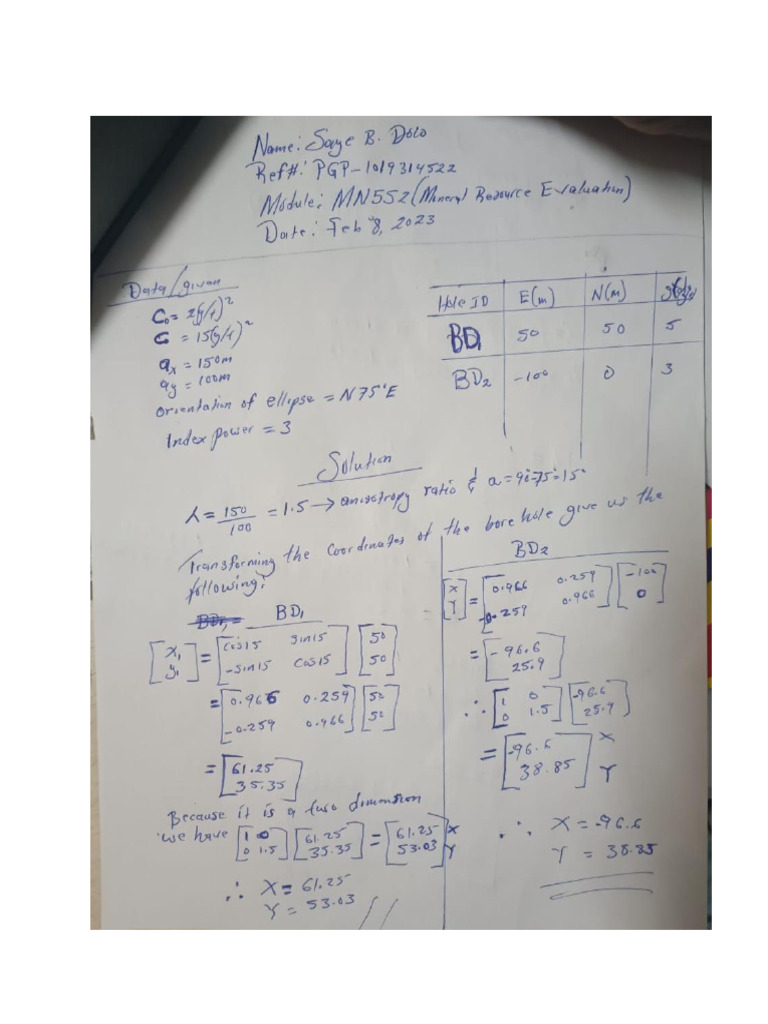 Name: Saye B. Dolo
Ref#: PGP-1019314522
Module: MN552 (Mineral Resource Evaluation)
Date: Feb 8, 2023
Data/given
C₀ = 2(g/t)²
C = 15(g/t)²
aₓ = 150m
aᵧ = 100m
orientation of ellipse = N75°E
Index power = 3
Hole ID E(m) N(m)
BD₁ 50 50 5
BD₂ -100 0 3
Solution
λ = 150/100 = 1.5 → anisotropy ratio & a = 90-75=15°
Transforming the coordinates of the bore hole give us the
following:
BD₁
[x₁ y₁] = [cos15 sin15 -sin15 cos15] [50 50]
= [0.966 0.259 -0.259 0.966] [50 50]
= [61.25 35.35]
Because it is a two dimension
we have [1 0 0 1.5] [61.25 35.35] = [61.25 53.03] X Y
∴ X = 61.25
Y = 53.03
BD₂
[X Y] = [0.966 0.259 -0.259 0.966] [-100 0]
= [-96.6 25.9]
∴ [1 0 0 1.5] [-96.6 25.9]
= [-96.6 38.85] X Y
∴ X = -96.6
Y = 38.85